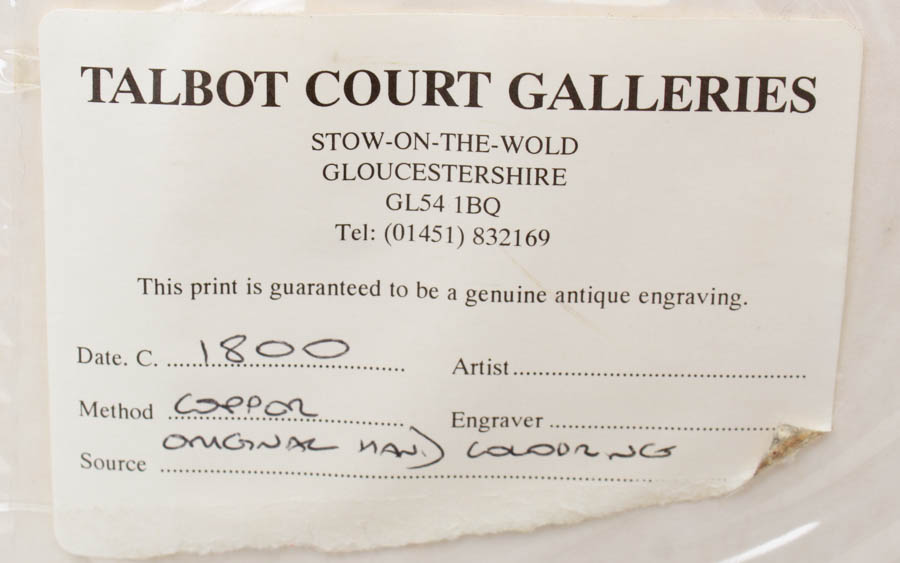 TALBOT COURT GALLERIES
STOW-ON-THE-WOLD
GLOUCESTERSHIRE
GL54 1BQ
Tel: (01451) 832169
This print is guaranteed to be a genuine antique engraving.
Date. C. 1800 Artist
Method COPPOR Engraver
ORIGINAL HAND COLOURING
Source